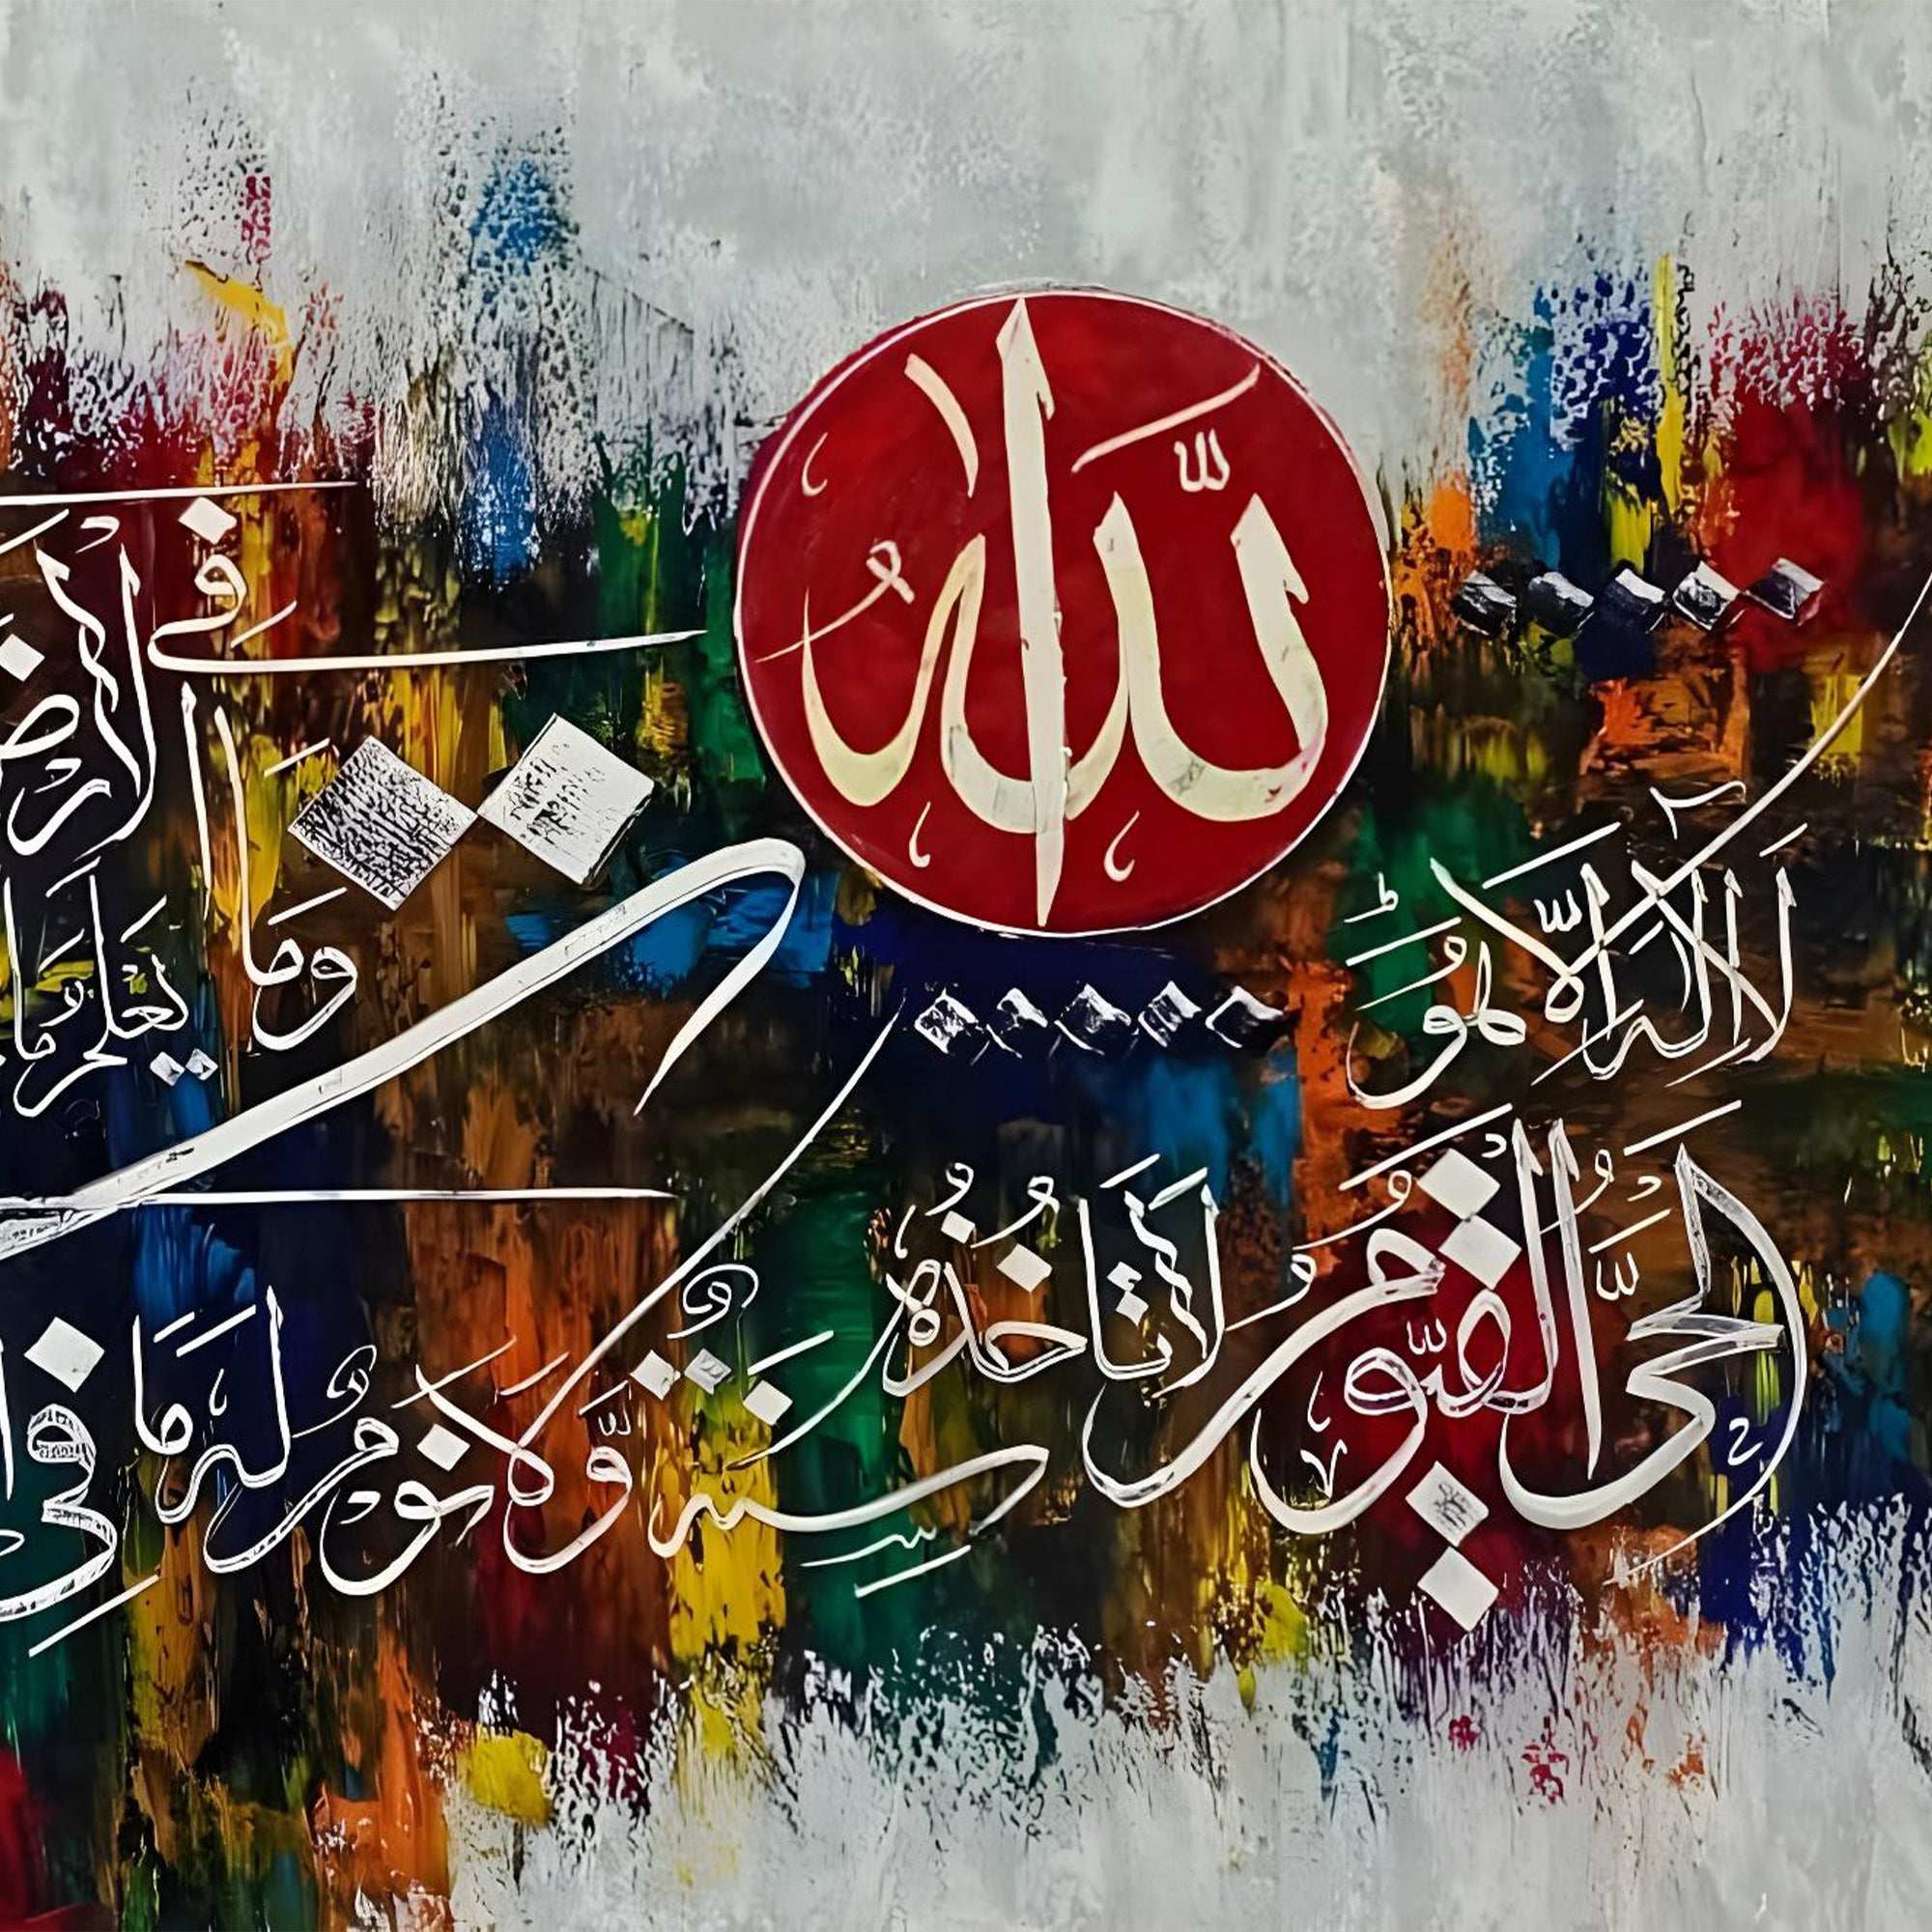 اللهُ
لَا إِلٰهَ إِلَّا هُوَ
الْحَيُّ الْقَيُّومُ لَا تَأْخُذُهُ سِنَةٌ وَّلَا نَوْمٌ لَهُ مَا فِي
وَمَا فِي الْأَرْضِ
يَعْلَمُ مَا